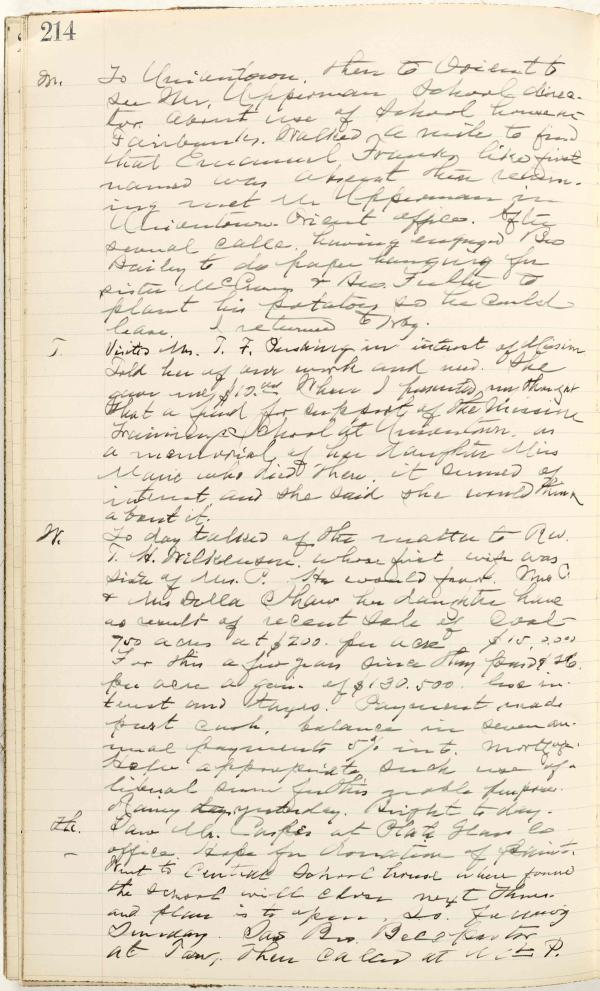 214
M. To Uniontown, then to Orient to
see Mr. Upperman School direc-
tor about use of School house at
Fairbanks. Walked a mile to find
that Emanuel Franks, like first
named was absent then return-
ing met Mr Upperman in
Uniontown-Orient office. After
several calls, having engaged Bro
Bailey to do paper hanging for
sister McC & Geo. Fuller to
plant his potatoes so he could
leave. I returned to
T. Visited Mrs. T. F. in interest of Mission
Told her of our work and need. She
gave me $10.00 When I presented my thought
that a fund for support of the Mission
Training School at Uniontown, as
a memorial of her daughter Miss
Marie who died there, it seemed of
interest and she said she would think
about it.
W. To day talked of the matter to Rev.
T. H. Wilkinson, whose first wife was
sister of Mrs. P. He would favor. Mrs C
& Mrs Della Shaw her daughter have
as result of recent sale of Coal-
750 acres at $200. per acre, $15,0,000
For this a few years since they paid $26.
per acre a gain of $130.500. less in-
terest and taxes. Payment made
part cash, balance in seven an-
nual payments 5% int. mortgage.
Hope appropriate such use of a
liberal sum for this noble purpose.
Rainy day yesterday. Bright to day.
Th. Saw Mr. at Plate Glass Co
office. Hope for donation of paint.
Went to Central School house where found
the School will close next Thurs.
and plan is to open, S.S. following
Sunday. Saw Bro. Pastor
at , then called at P.